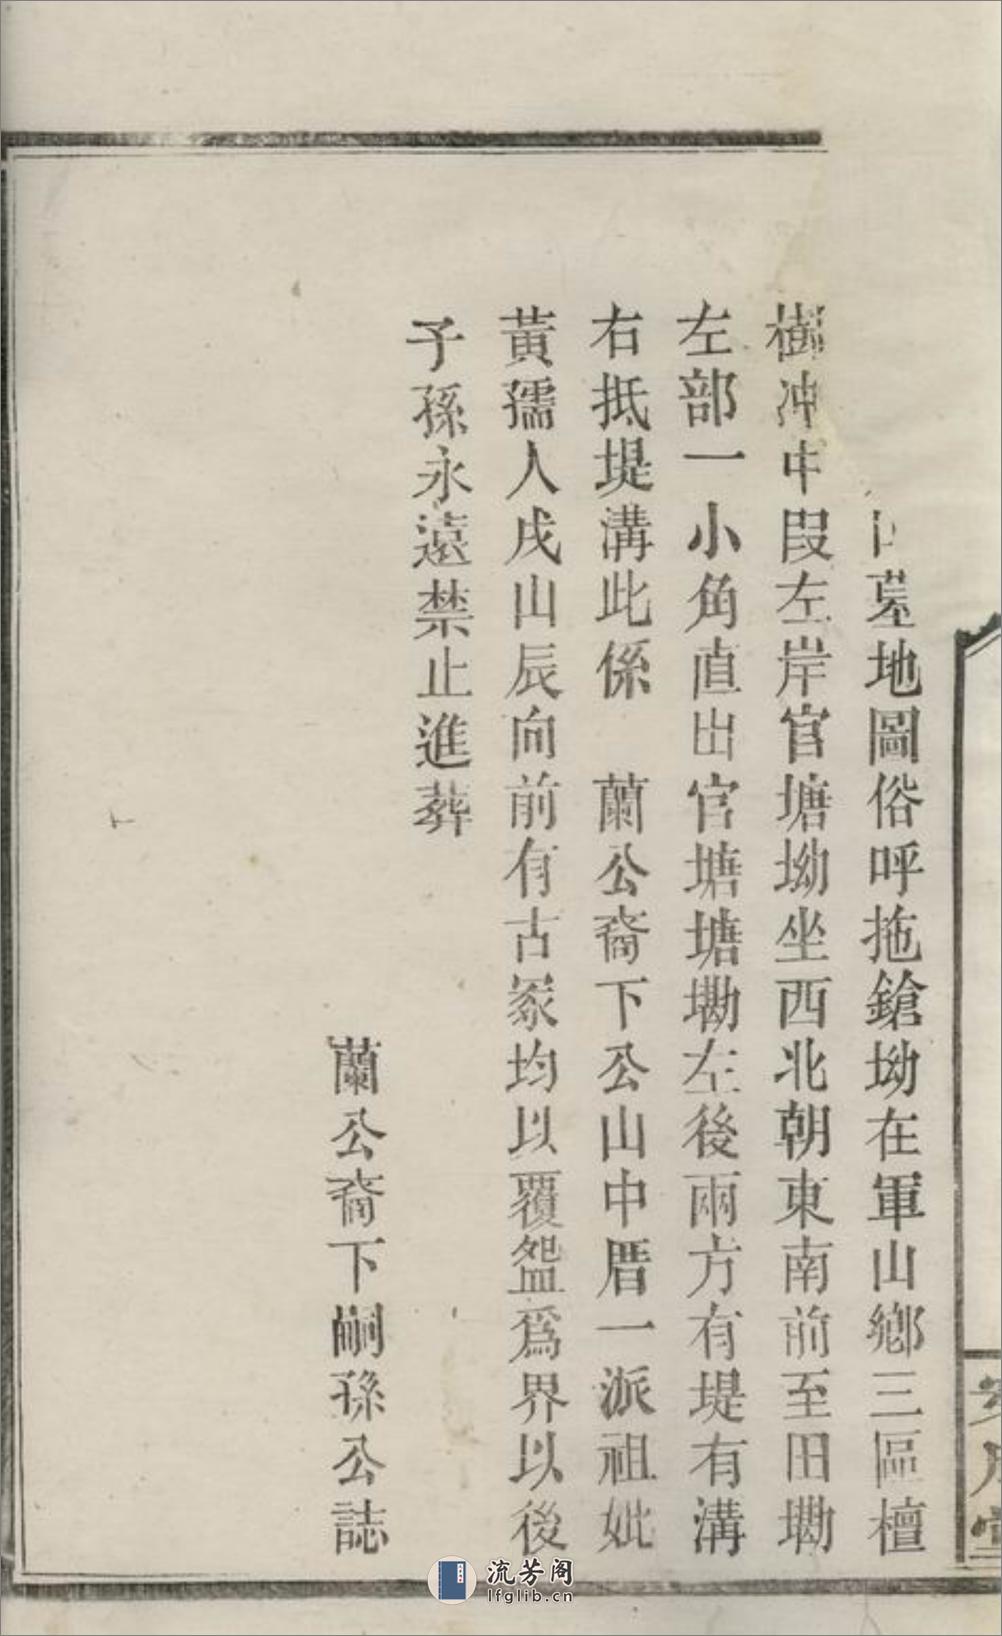 墓地圖俗呼拖鎗坳在軍山鄉三區檀
樹沖中段左岸官塘坳坐西北朝東南前至田墈
左部一小角直出官塘塘墈左後兩方有堤有溝
右抵堤溝此係　蘭公裔下公山中厝一派祖妣
黃孺人戌山辰向前有古冢均以覆盌爲界以後
子孫永遠禁止進葬
蘭公裔下嗣孫公誌
堂
流芳阁
lfglib.cn